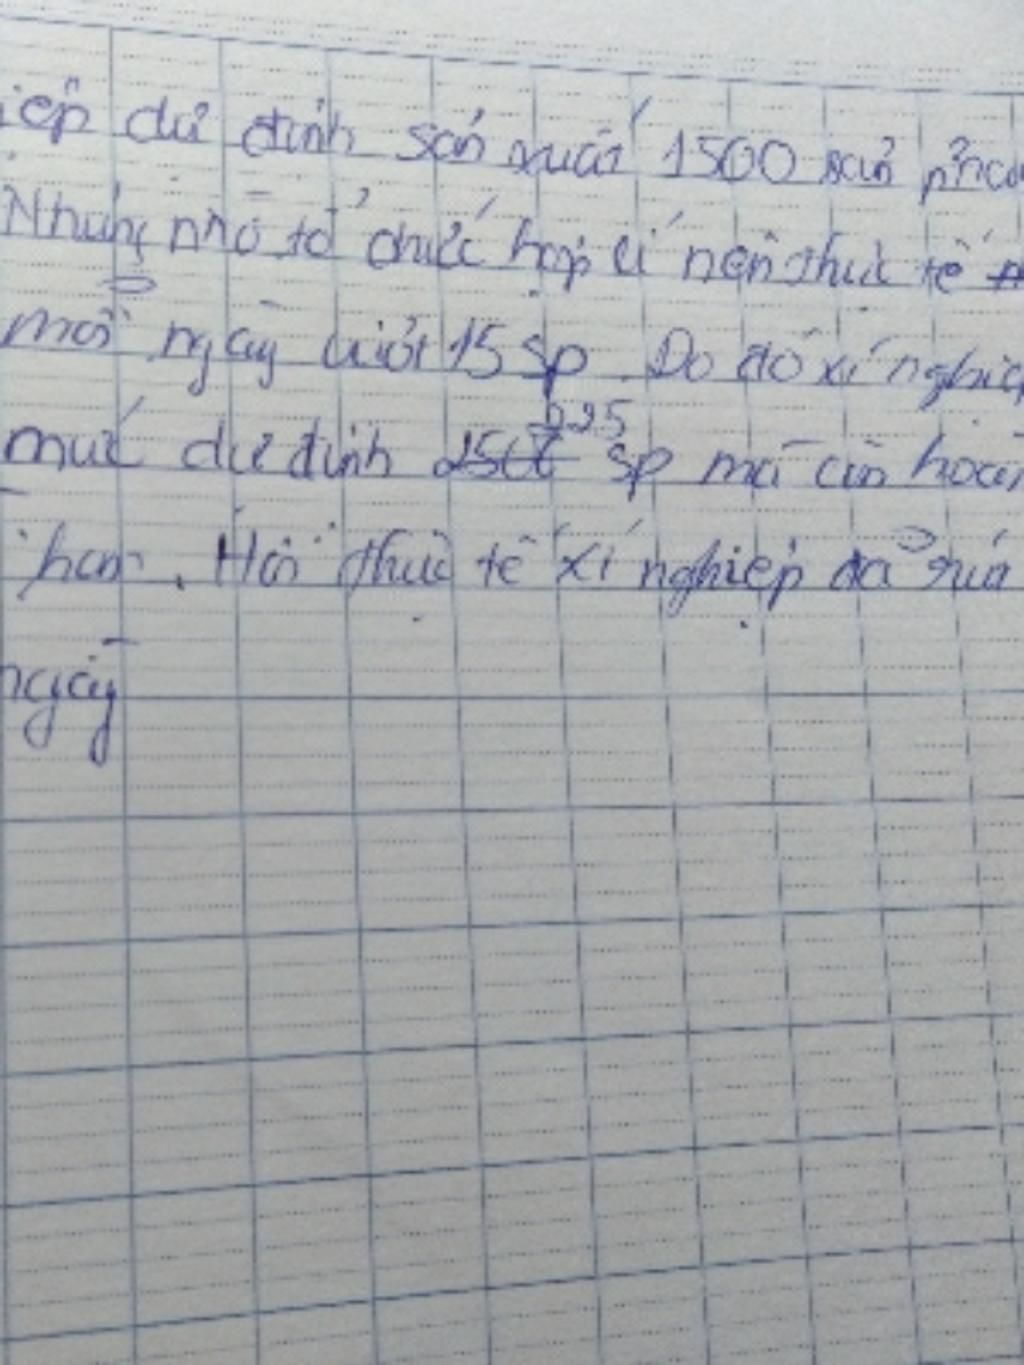 iệp dự định sản xuất 1500 sản phẩ
Nhưng nhờ tổ chức hợp lí nên thực tế
mỗi ngày vượt 15 sp. Do đó xí nghiệp
mức dự định 225 sp mà còn hoàn
hạn. Hỏi thực tế xí nghiệp đã rút
ngày